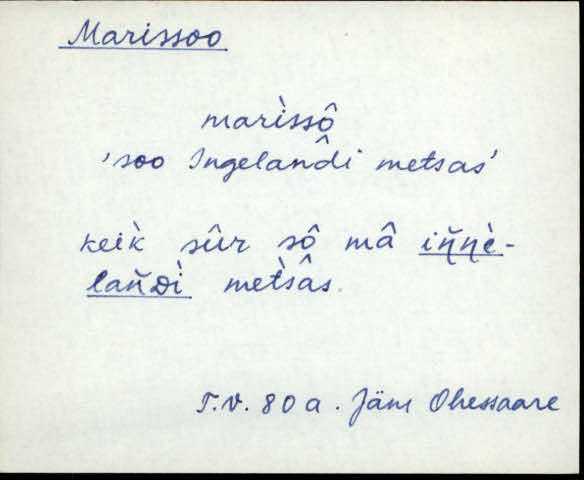 Marissoo
marìssô
'soo Ingelandi metsas'
keik̀ sûr sô mâ iŋ̆ŋè-
lan̆Dì metsâs.
T.V. 80 a. Jäm Ohessaare